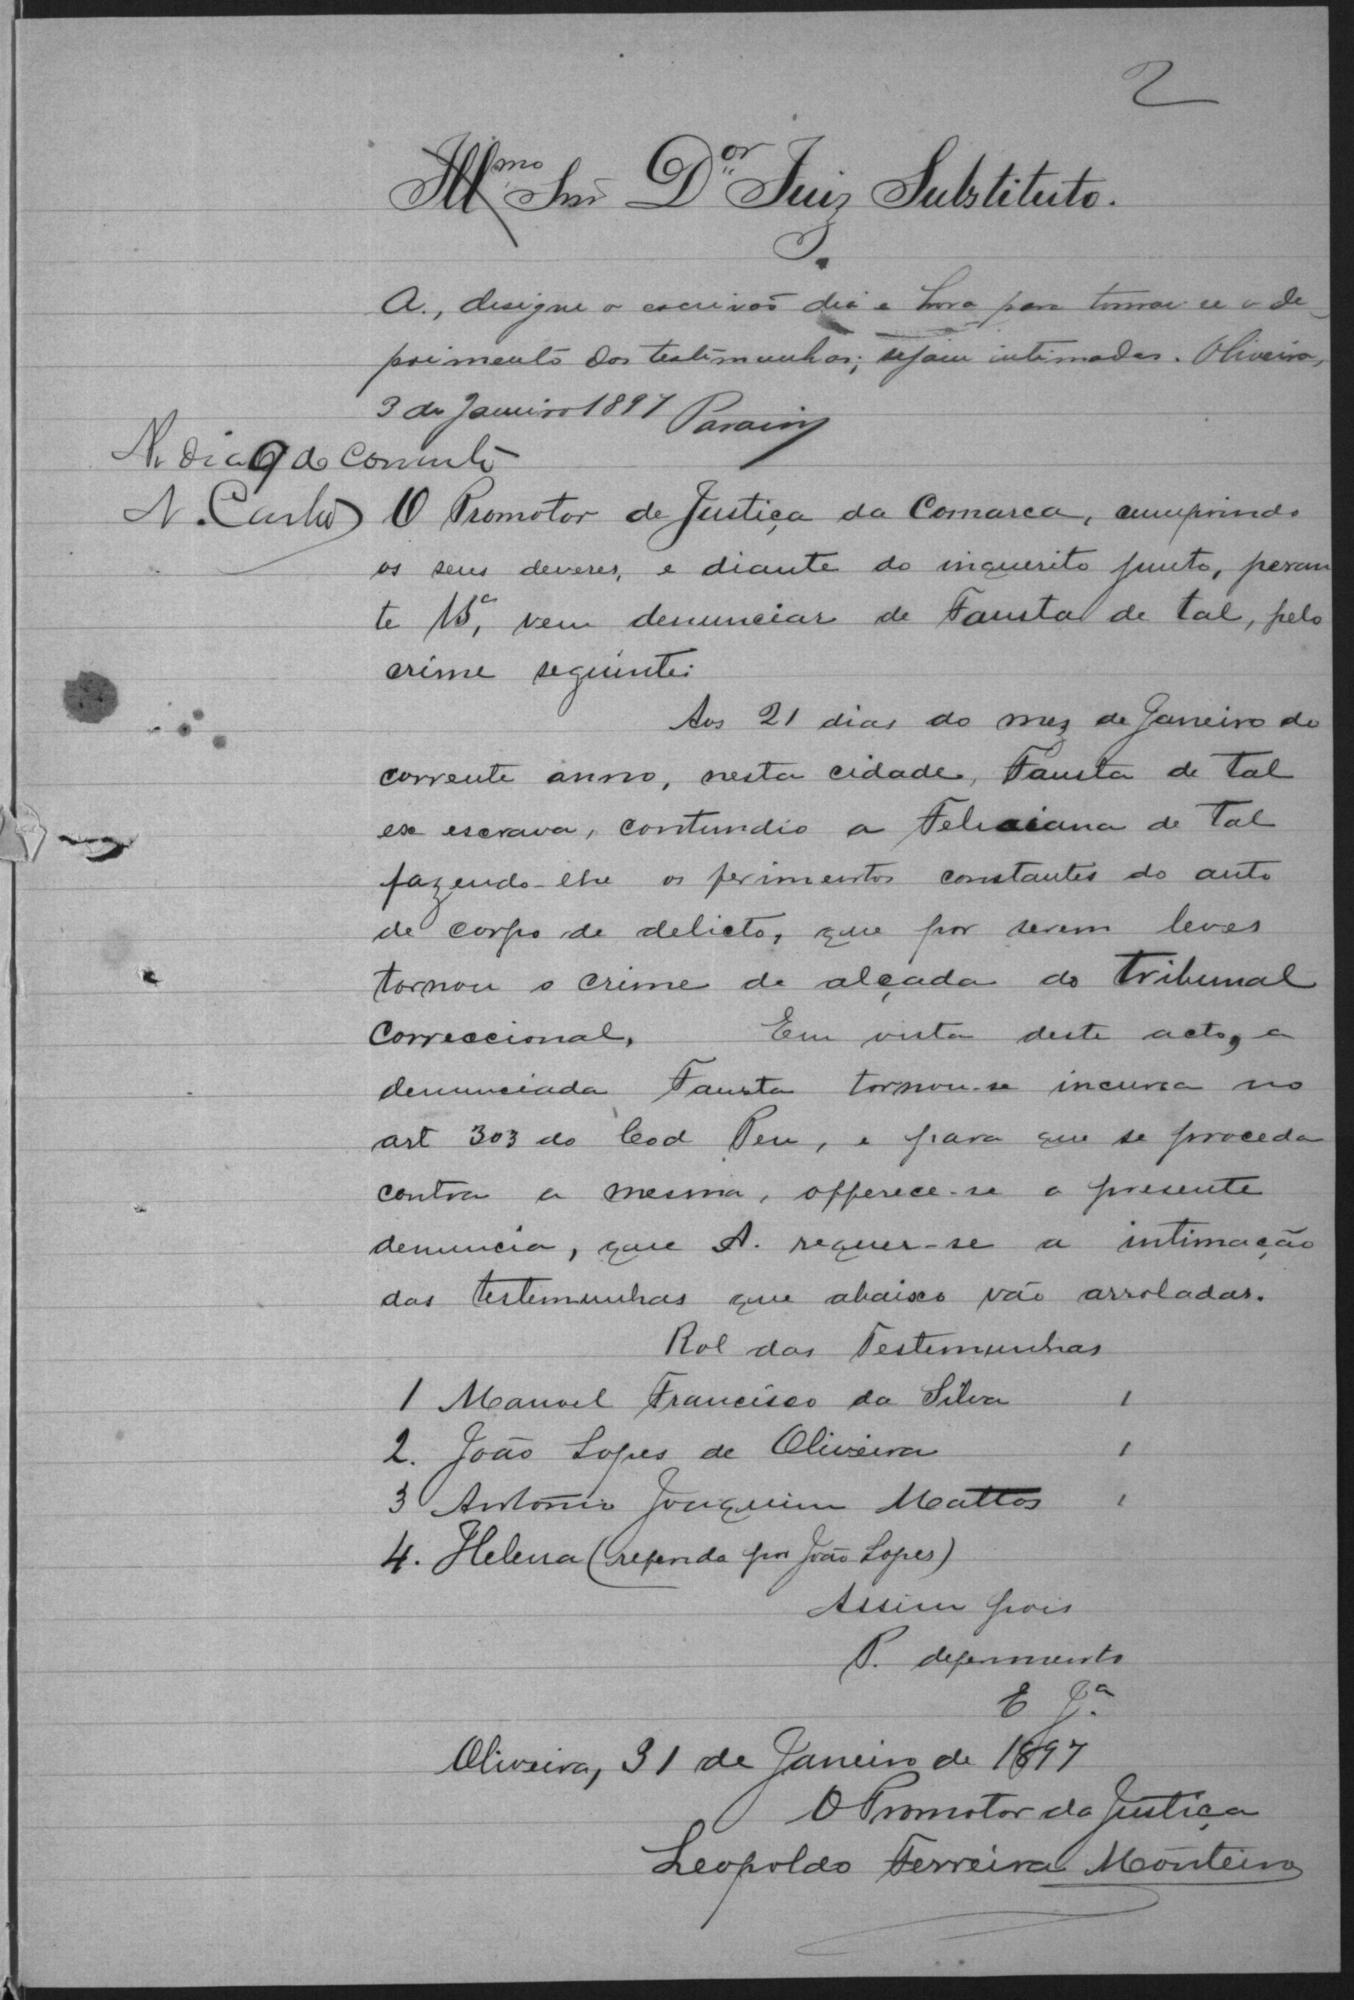 2
Illmo Snr Dor Juiz Substituto.
A., designe o escrivão dia e hora para tomar-se o de-
poimento dos testemunhas; sejam intimadas. Oliveira,
3 de Janeiro 1897
No dia 9 do corrente
O Promotor de Justiça da Comarca, cumprindo
os seus deveres, e diante do inquerito junto, peran
te VSa, vem denunciar de Fausta de tal, pelo
crime seguinte:
Aos 21 dias do mez de Janeiro do
corrente anno, nesta cidade, Fausta de tal
ex escrava, contundio a Feliciana de Tal
fazendo-lhe os ferimentos constantes do auto
de corpo de delicto, que por serem leves
tornou o crime de alçada do tribunal
Correccional. Em vista deste acto, a
denunciada Fausta tornou-se incursa no
art 303 do Cod Pen, e para que se proceda
contra a mesma, offerece-se a presente
denuncia, que A. requer-se a intimação
das testemunhas que abaixo vão arroladas.
Rol das Testemunhas
1 Manoel Francisco da Silva 1
2. João Lopes de Oliveira 1
3 Antônio Joaquim Mattos 1
4. Helena (referida por João Lopes)
Assim pois
P. deferimento
E Ja.
Oliveira, 31 de Janeiro de 1897
O Promotor da Justiça
Leopoldo Ferreira Monteiro